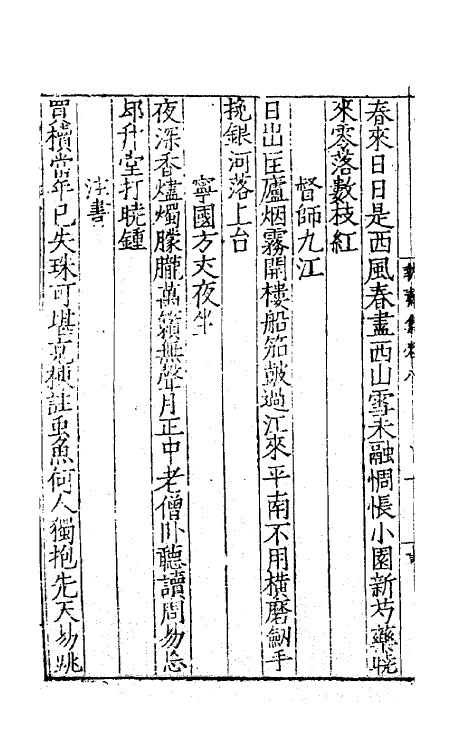 春來日日是西風春盡西山雪未融惆悵小園新芍藥曉
來零落數枝紅
督師九江
日出匡廬烟霧開樓船笳鼓過江來平南不用橫磨劒手
挽銀河落上台
寧國方丈夜坐
夜深香燼燭朦朧萬籟無聲月正中老僧卧聽讀周易忘
却升堂打曉鍾
注書
買櫝當年已失珠可堪克棟註虫魚何人獨抱先天易跳